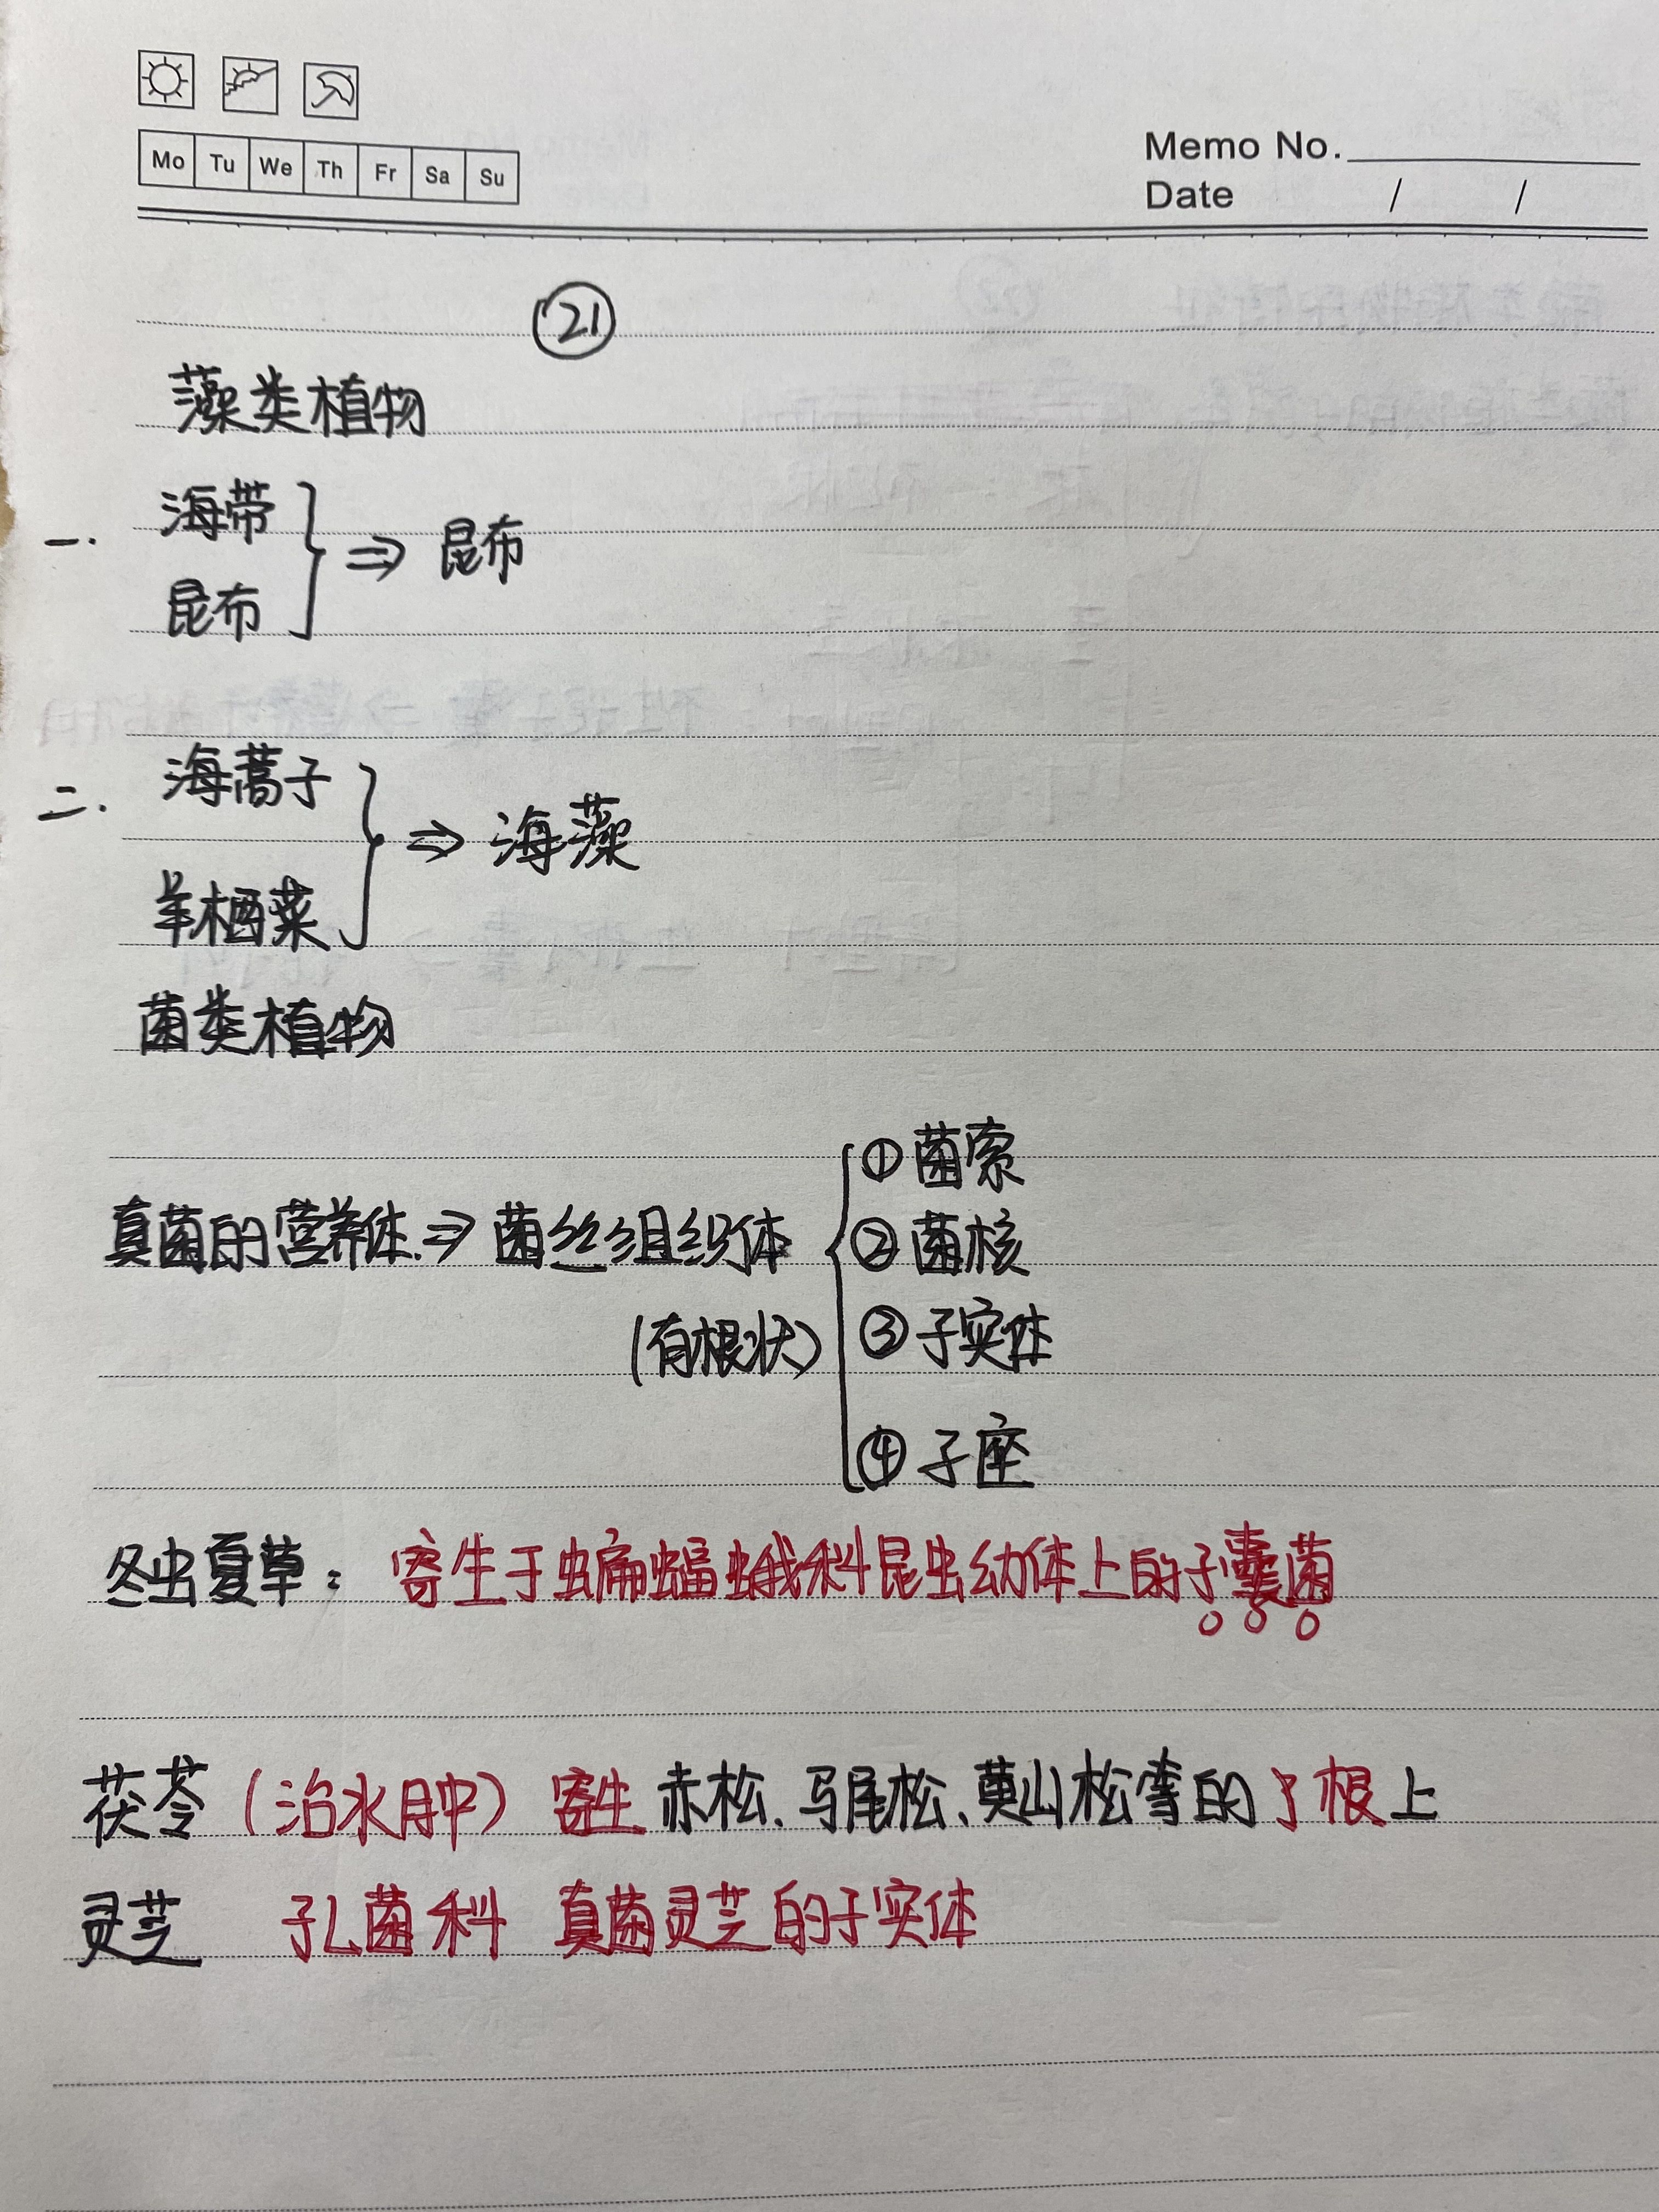 Mo Tu We Th Fr Sa Su
Memo No.
Date / /
㉑
藻类植物
一. 海带
昆布
⇒ 昆布
二. 海蒿子
羊栖菜
⇒ 海藻
菌类植物
真菌的营养体 ⇒ 菌丝组织体
(有根状)
①菌索
②菌核
③子实体
④子座
冬虫夏草: 寄生于蝙蝠蛾科昆虫幼体上的子囊菌
茯苓(治水肿) 寄生 赤松、马尾松、黄山松等的 根上
灵芝 孔菌科 真菌灵芝的子实体